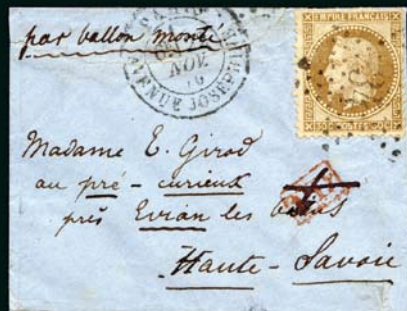 par ballon monté
PARIS
NOV.
AVENUE JOSEPHINE
EMPIRE FRANÇAIS
30 C POSTES 30 C
Madame E. Girod
au pré - curieux
près Evian les bains
Haute - Savoie